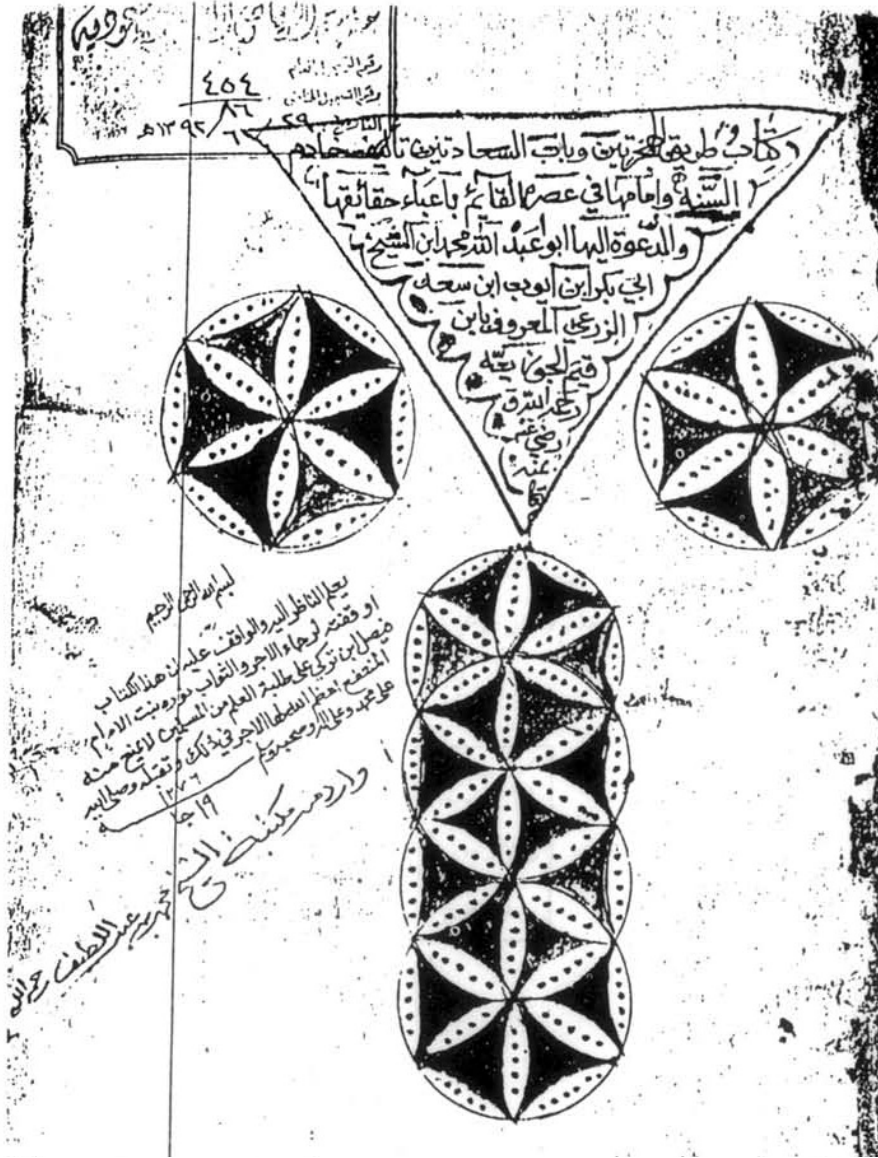 السعودية
رقم التسجيل العام ٤٥٤
رقم التسجيل الخاص ٨٦
التاريخ ٢٩/٦/١٣٩٢هـ
كتاب طريق الهجرتين وباب السعادتين تأليف خادم
السنة وإمامها في عصره القائم بأعباء حقائقها
والدعوة إليها ابو عبد الله محمد ابن الشيخ
ابي بكر ابن ايوب ابن سعد
الزرعي المعروف بابن
قيم الجوزية
رحمه الله و
رضي
عنه
بسم الله الرحمن الرحيم
يعلم الناظر إليه والواقف عليه ان هذا الكتاب
اوقفته لرجاء الاجر والثواب نوره بنت الامام
فيصل بن تركي على طلبة العلم من المسلمين لا يمنع منه
المنتفع اعظم الله لها الاجر في ذلك وتقبله وصلى الله
على محمد وعلى آله وصحبه وسلم
١٩ جا ١٢٧٦
وارد من مكتبة الشيخ محمد بن عبد اللطيف رحمه الله